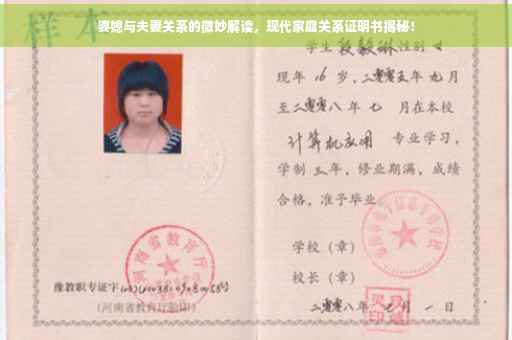 婆媳与夫妻关系的微妙解读，现代家庭关系证明书揭秘！
样本
学生 段毅琳 性别 女
现年 16 岁，二零零五年 九月
至二零零八年 七 月在本校
计算机应用 专业学习，
学制 三年，修业期满，成绩
合格，准予毕业。
学校（章）
校长（章）
二零零八年 七 月 一 日
河南省教育厅
豫教职专证字
（河南省教育厅验印）